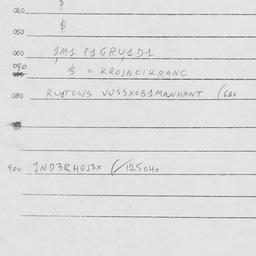 020 $
050 $
060 1M1 P1GRU1D1
090 $ = KROJNCIKRANC
080 RUYTOWS VUS3XOB1MANHANT (660
900 1ND3RHOJ3X (/125040